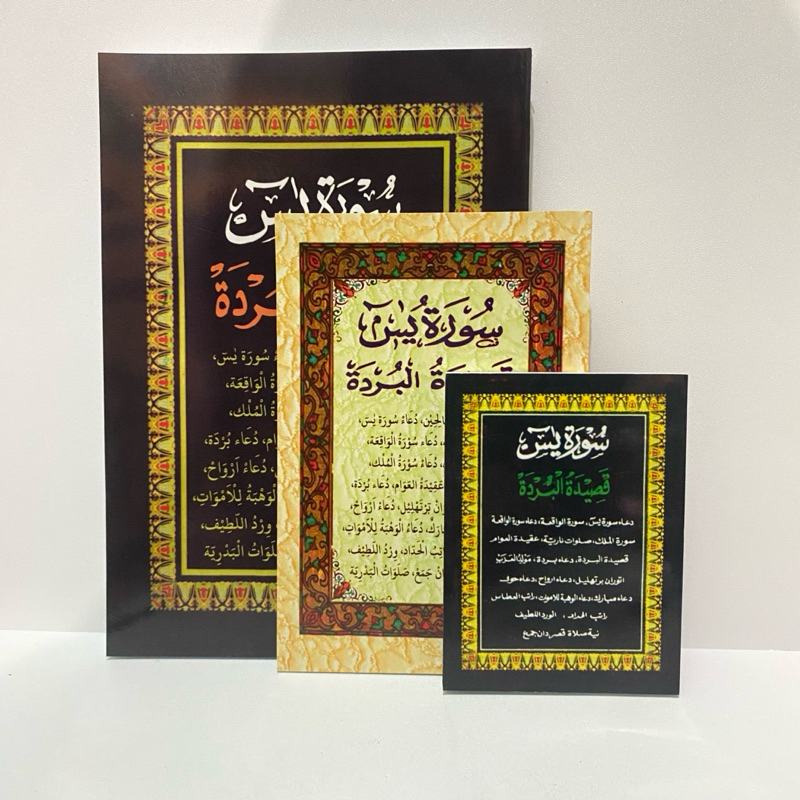 سُورَة يٰسٓ
بُرْدَة
سُورَة يٰسٓ،
الْوَاقِعَة،
الْمُلْك،
دُعَاء بُرْدَة،
دُعَاءُ اَرْوَاحْ،
الْوَهْبَةُ لِلْاَمْوَاتِ،
وِرْدُ اللَّطِيْف،
صَلَوَاتُ الْبَدْرِيَّة
سُورَة يٰسٓ
الْبُرْدَة
دُعَاءُ سُورَة يٰسٓ،
دُعَاء سُوْرَةُ الْوَاقِعَة،
دُعَاءُ سُوْرَةُ الْمُلْك،
عَقِيْدَةُ الْعَوَام، دُعَاء بُرْدَة،
تِرْتَهْلِيْل، دُعَاءُ اَرْوَاحْ،
دُعَاءُ الْوَهْبَةُ لِلْاَمْوَاتِ،
الْحَدَاد، وِرْدُ اللَّطِيْف،
جَمَعْ، صَلَوَاتُ الْبَدْرِيَّة
سُوْرَة يٰسٓ
قَصِيْدَةُ الْبُرْدَة
دعاء سورة يسٓ، سورة الواقعة، دعاء سورة الواقعة
سورة الملك، صلوات نارية، عقيدة العوام
قصيدة البردة، دعاء بردة، مولد العزب
اتوران برتهليل، دعاء ارواح، دعاء حول
دعاء مبارك، دعاء الوهبة للاموت، راتب العطاس
راتب الحداد، الورد اللطيف
نية صلاة قصر دان جمع